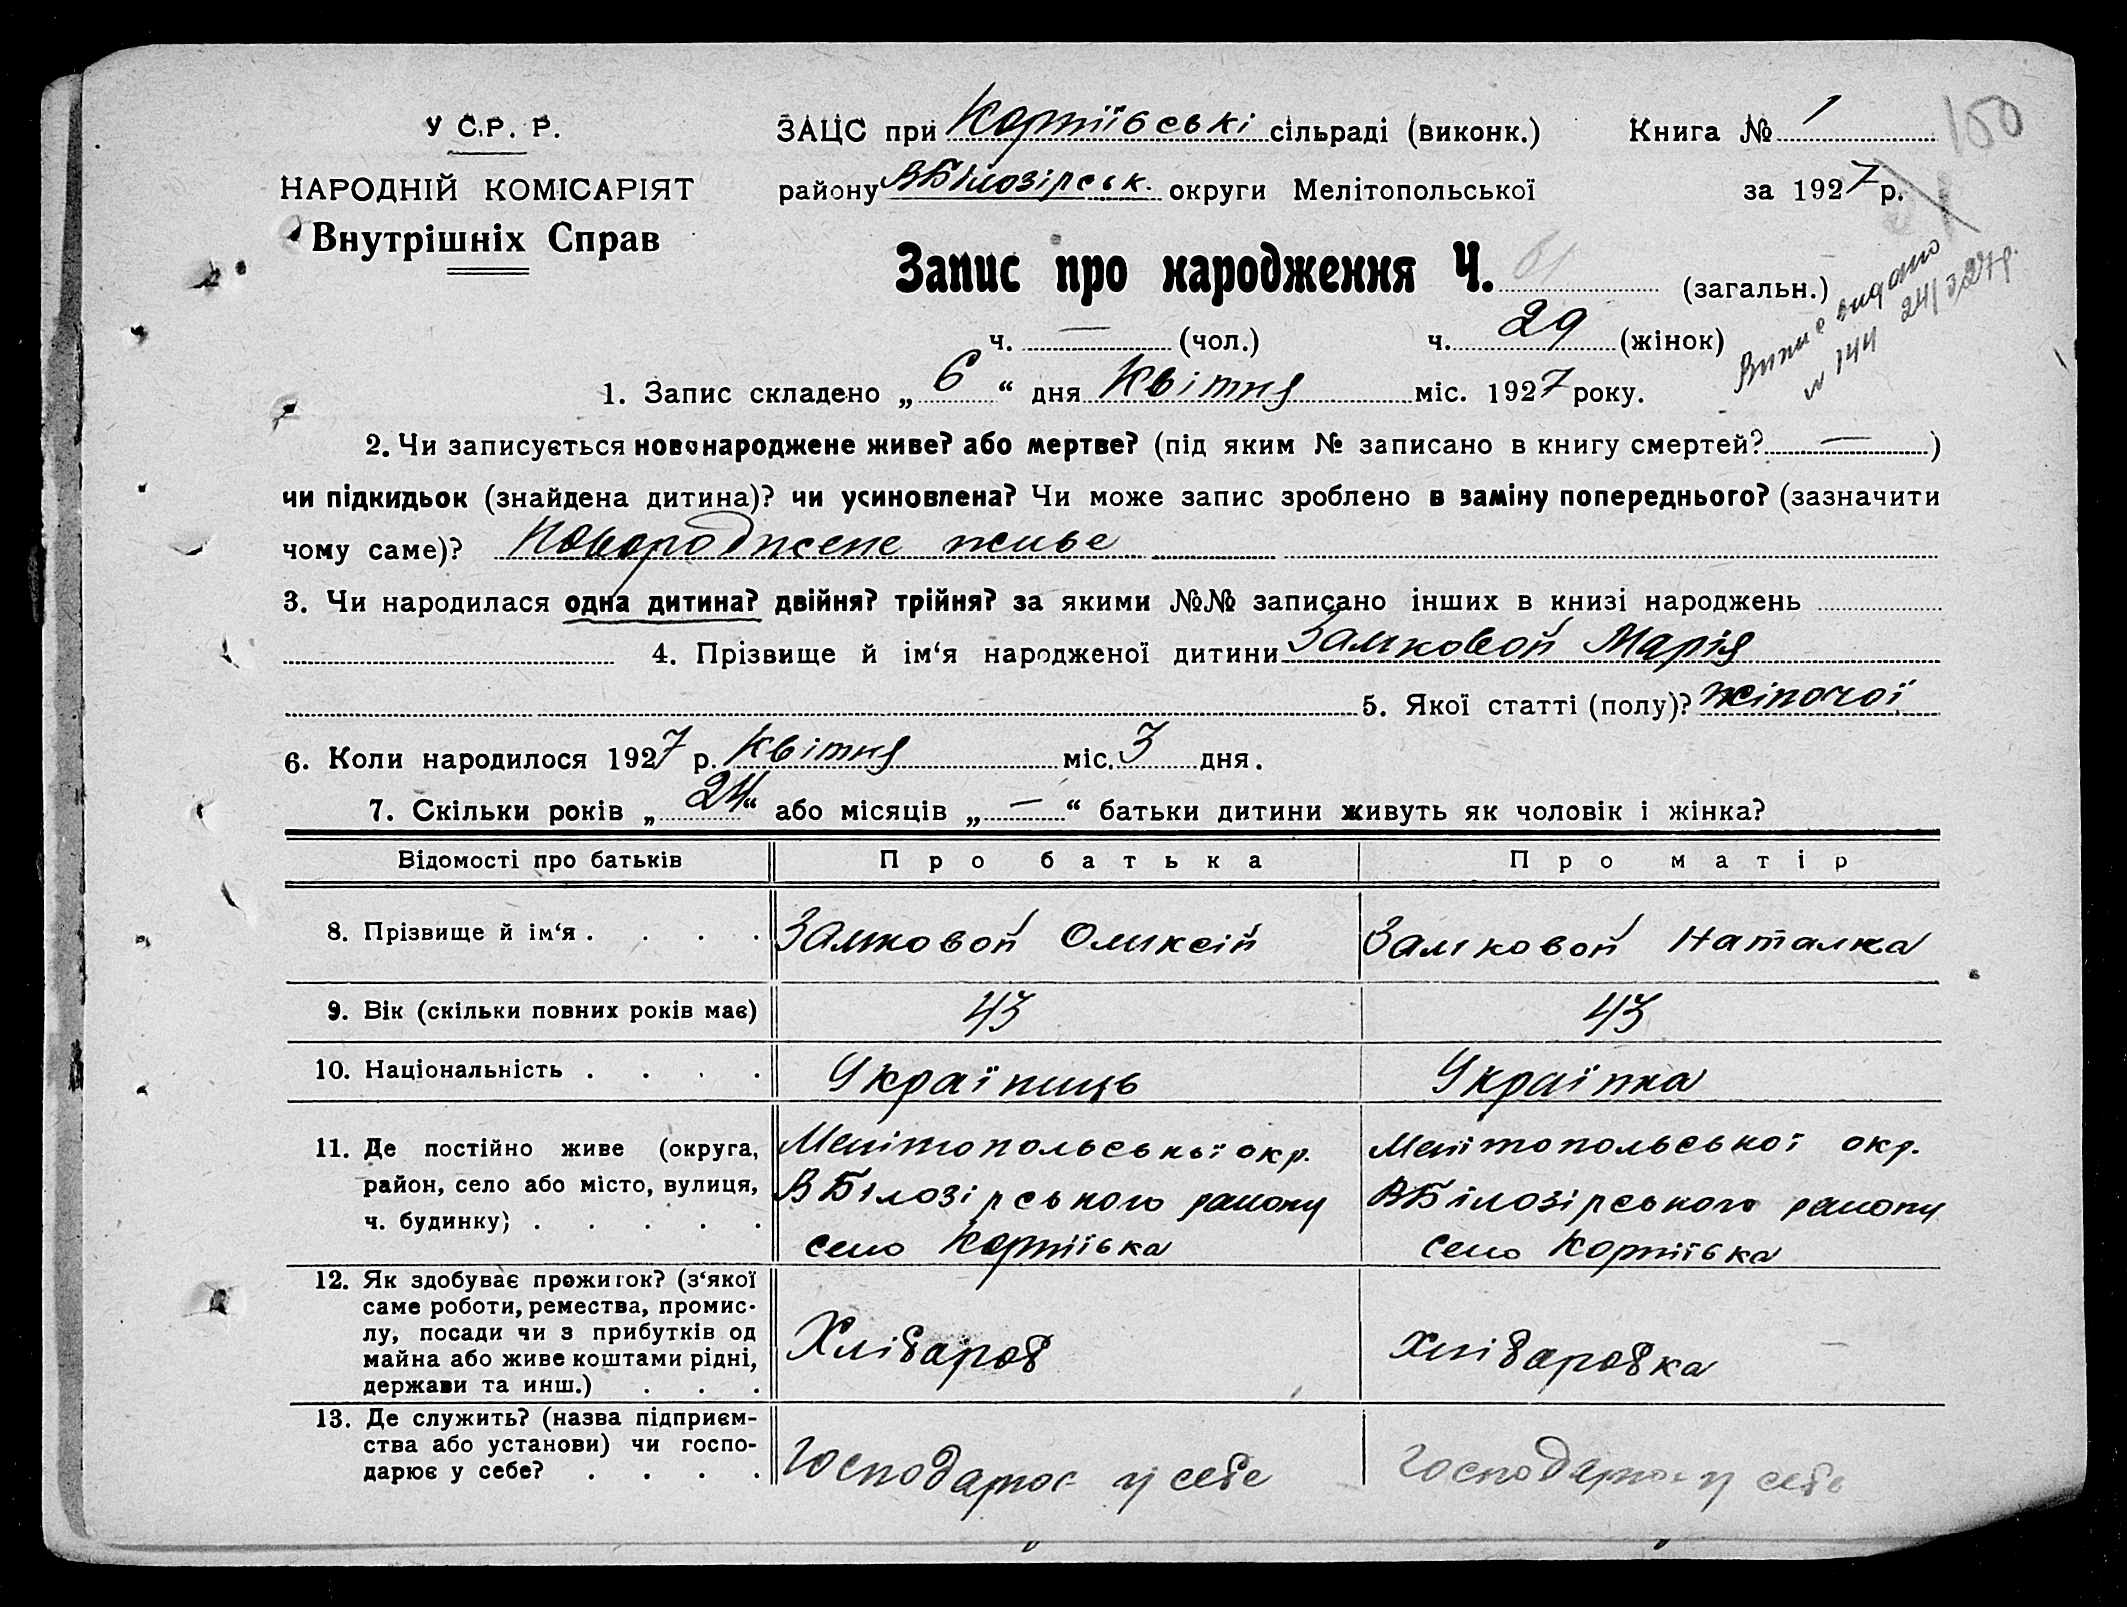 У С.Р. Р.
НАРОДНІЙ КОМІСАРІЯТ
Внутрішніх Справ
ЗАЦС при Корніївські сільраді (виконк.) Книга № 1
150
району ВБілозірськ. округи Мелітопольської за 1927 р.
Запис про народження Ч. 61 (загальн.)
Випис видано
№ 144 24/3 27р.
ч. — (чол.) ч. 29 (жінок)
1. Запис складено „ 6 “ дня Квітня міс. 1927 року.
2. Чи записується новонароджене живе? або мертве? (під яким № записано в книгу смертей? — )
чи підкидьок (знайдена дитина)? чи усиновлена? Чи може запис зроблено в заміну попереднього? (зазначити
чому саме)? Новороджене живе
3. Чи народилася одна дитина? двійня? трійня? за якими №№ записано інших в книзі народжень
4. Прізвище й ім‘я народженої дитини Замковой Марія
5. Якої статті (полу)? жіночої
6. Коли народилося 1927 р. Квітня міс. 3 дня.
7. Скільки років „ 24 “ або місяців „ — “ батьки дитини живуть як чоловік і жінка?
Відомості про батьків Про батька Про матір
8. Прізвище й ім‘я . . . . Замковой Оликсій Замковой Наталка
9. Вік (скільки повних років має) 43 43
10. Національність . . . . Україниць Українка
11. Де постійно живе (округа,
район, село або місто, вулиця,
ч. будинку) . . . . .
Мелітопольської окр.
ВБілозірського району
село Корніївка
Мелітопольської окр.
ВБілозірського району
село Корніївка
12. Як здобуває прожиток? (з‘якої
саме роботи, ремества, промис-
лу, посади чи з прибутків од
майна або живе коштами рідні,
держави та инш.) . . .
Хлібароб
Хлібаробка
13. Де служить? (назва підприєм-
ства або установи) чи госпо-
дарює у себе? . . . .
Господарює у себе
Господарює у себе